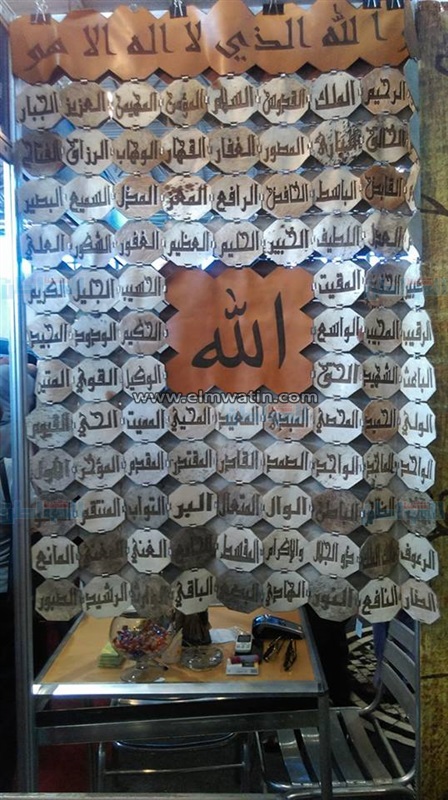 الله الذي لا اله الا هو
الرحيم الملك القدوس السلام المؤمن المهيمن العزيز الجبار
الخالق البارئ المصور الغفار القهار الوهاب الرزاق الفتاح
القابض الباسط الخافض الرافع المعز المذل السميع البصير
العدل اللطيف الخبير الحليم العظيم الغفور الشكور العلي
المقيت الحسيب الجليل الكريم
الله
الرقيب المجيب الواسع الحكيم الودود المجيد
الباعث الشهيد الحق الوكيل القوي المتين
www.elmwatin.com
الولي الحميد المحصي المبدئ المعيد المحيي المميت الحي القيوم
الواجد الماجد الواحد الصمد القادر المقتدر المقدم المؤخر الأول
الظاهر الباطن الوال المتعال البر التواب المنتقم
الرءوف ذو الجلال والإكرام المقسط الغني المانع
الضار النافع النور الهادي البديع الباقي الرشيد الصبور